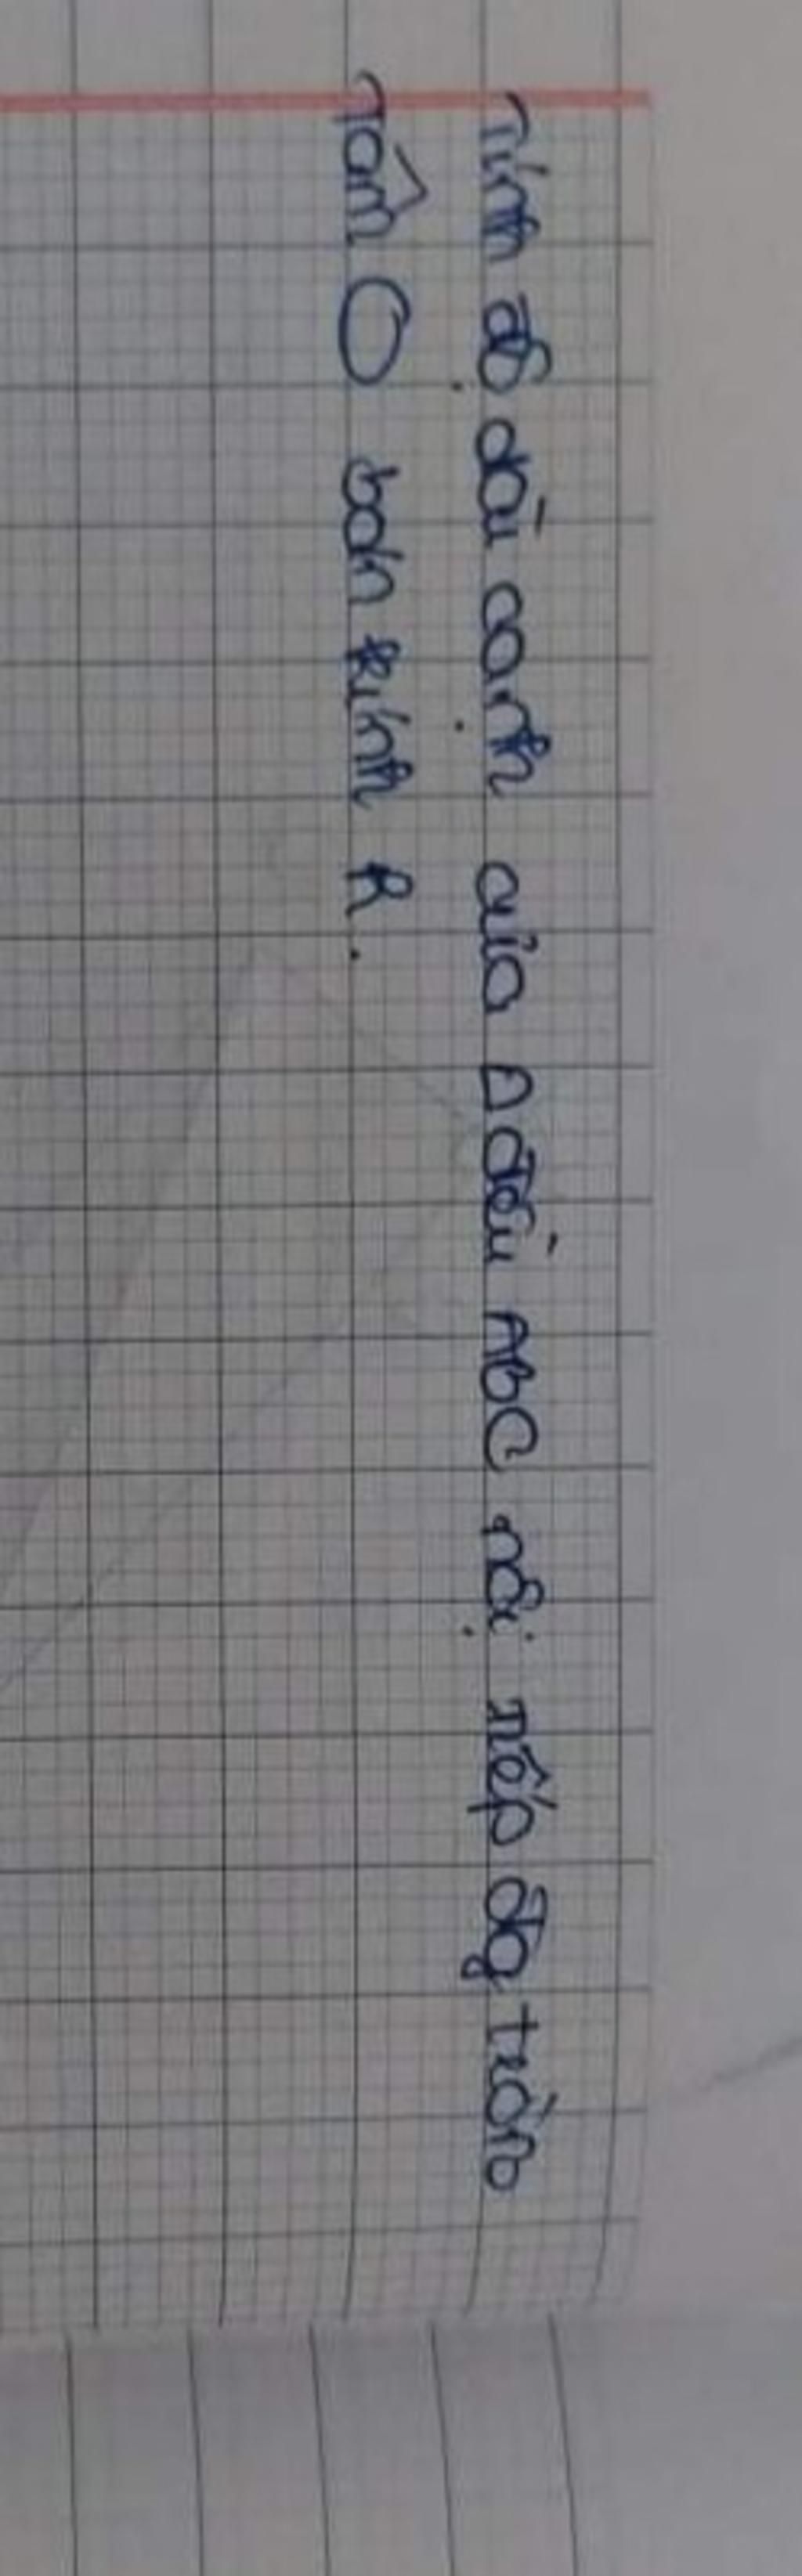 Tính độ dài cạnh của Δ đều ABC nội tiếp đg tròn
Tâm O bán kính R.